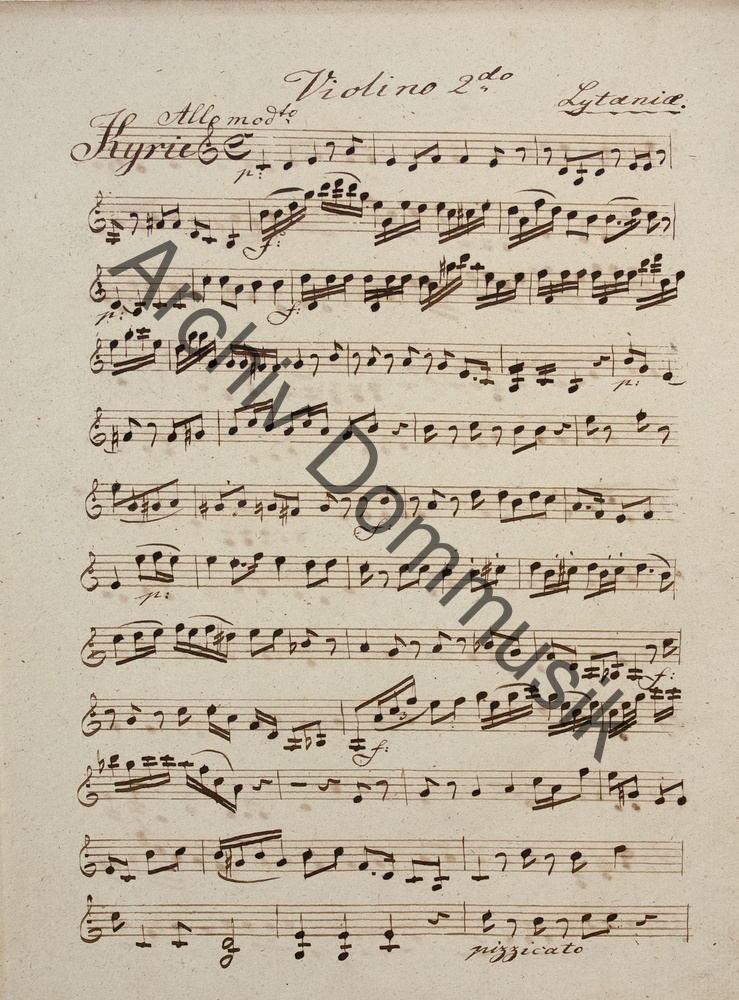 Violino 2do
Lytaniæ.
Allo modto
Kyrie
p:
f:
p: f:
p:
f
p:
f:
f:
pizzicato
Archiv Dommusik